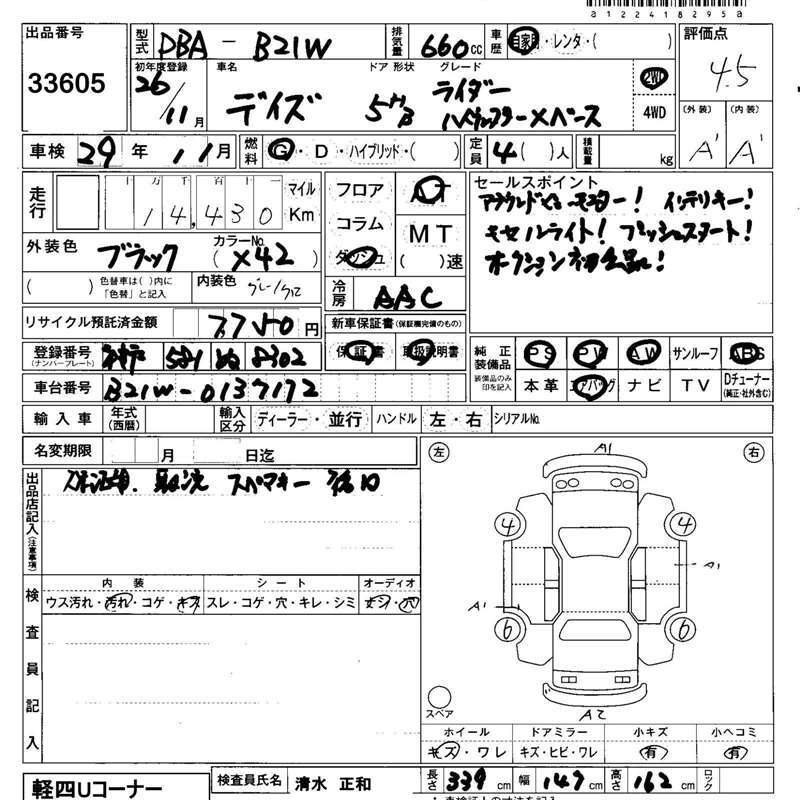 a122418295a
出品番号
33605
型式 DBA - B21W 排気量 660cc 車歴 自家用・レンタ・( )
評価点
4.5
初年度登録 26/11月 車名 デイズ ドア 形状 5HB グレード ライダー
ハイウェイスターXベース
2WD
4WD
(外装) (内装)
A' A'
車検 29年 11月 燃料 G・D・ハイブリッド・( ) 定員 4( )人 積載量 kg
走行 十万千百十 14,430 マイル Km
フロア
コラム
ダッシュ
AT
MT
( )速
セールスポイント
アラウンドビューモニター! インテリキー!
キセルライト! プッシュスタート!
オークション初出品!
外装色 ブラック カラーNo. (X42)
( ) 色替車は( )内に「色替」と記入 内装色 グレー/クロ
冷房 AAC
リサイクル預託済金額 7750円
新車保証書(保証欄完備のもの)
保証書 取扱説明書
登録番号 (ナンバープレート) 581 ぬ 8302
純正装備品 PS PW AW サンルーフ ABS
装備品のみ印を記入 本革 エアバッグ ナビ TV Dチューナー (純正・社外含C)
車台番号 B21W-0137172
輸入車 年式(西暦) 輸入区分 ディーラー・並行 ハンドル 左・右 シリアルNo.
名変期限 月 日迄
出品店記入(注意事項)
スペアキー
左 右
A1
4 4
A1
A1
6 6
スペア
A2
検査員記入
内装 シート オーディオ
ウス汚れ・汚れ・コゲ・キズ スレ・コゲ・穴・キレ・シミ ナシ・穴
ホイール ドアミラー 小キズ 小ヘコミ
キズ・ワレ キズ・ヒビ・ワレ 有 有
軽四Uコーナー
検査員氏名 清水 正和
長さ 339cm 幅 147cm 高さ 162cm ロック